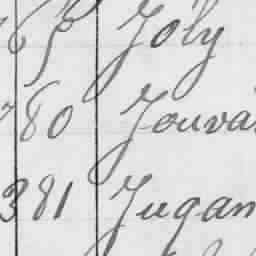 65 Joly
80 Jouva
381 Jugan